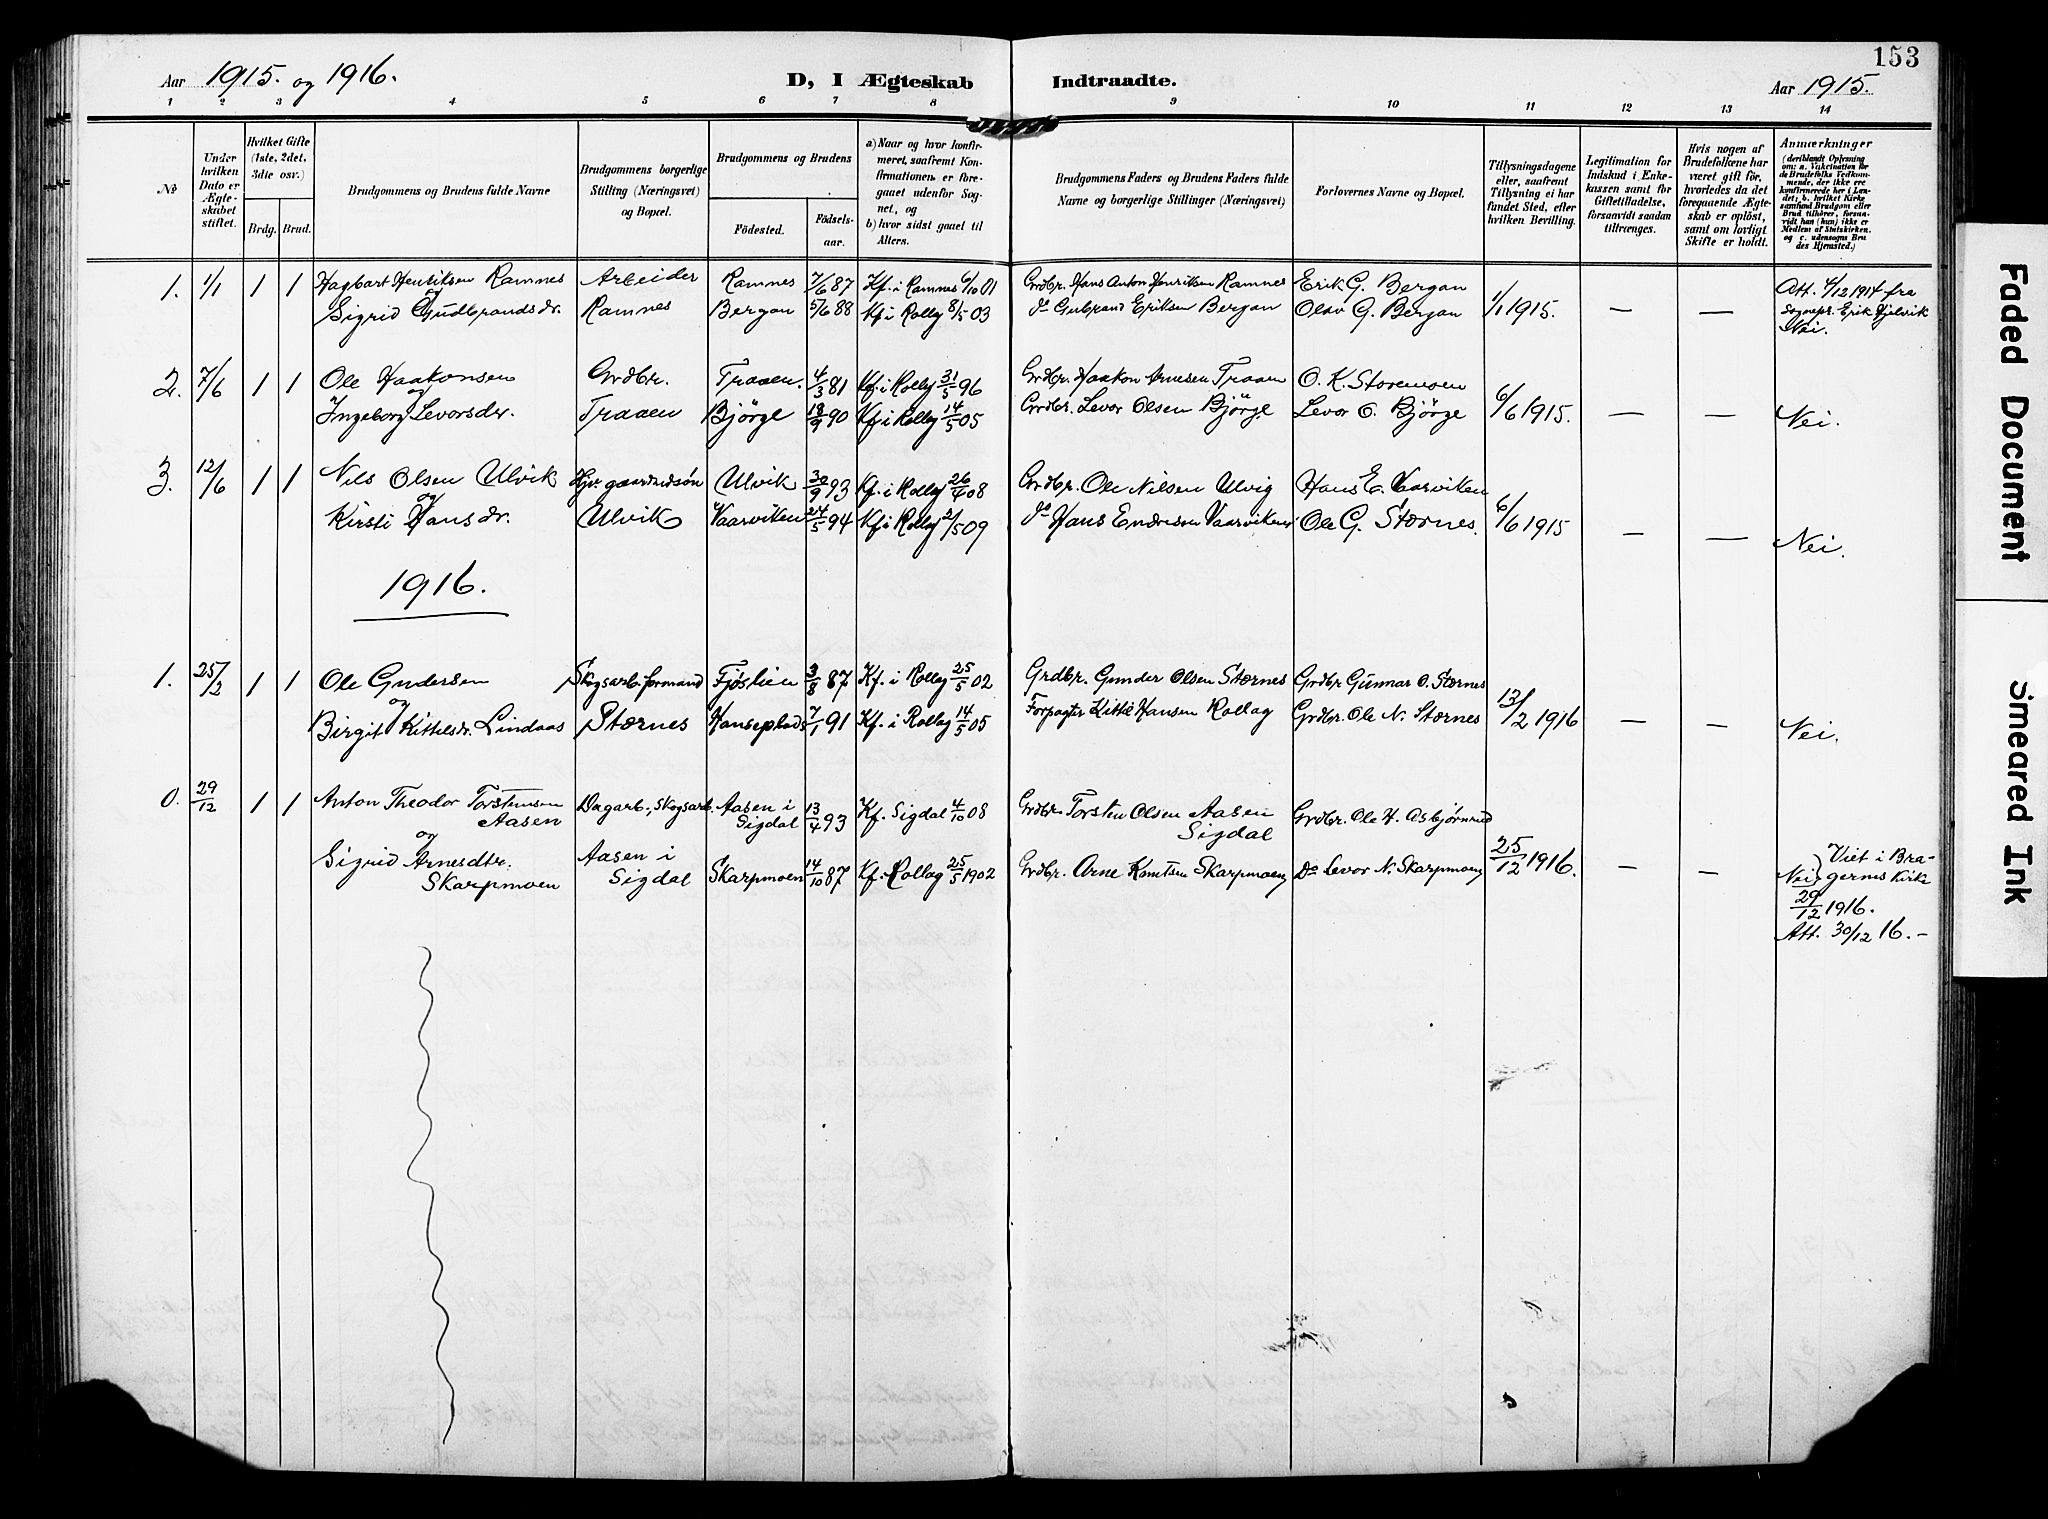 153
Aar 1915. og 1916.
D, I Ægteskab Indtraadte.
Aar 1915.
1 2 3 4 5 6 7 8 9 10 11 12 13 14
No
Under hvilken Dato er Ægteskabet stiftet.
Hvilket Gifte (1ste, 2det, 3die osv.)
Brdg. Brud.
Brudgommens og Brudens fulde Navne
Brudgommens borgerlige Stilling (Næringsvei) og Bopæl.
Brudgommens og Brudens
Fødested. Fødsels-aar.
a) Naar og hvor konfirmeret, saafremt Konfirmationen er foregaaet udenfor Sognet, og
b) hvor sidst gaaet til Alters.
Brudgommens Faders og Brudens Faders fulde Navne og borgerlige Stillinger (Næringsvei)
Forlovernes Navne og Bopæl.
Tillysningsdagene eller, saafremt Tillysning ei har fundet Sted, efter hvilken Bevilling.
Legitimation for Indskud i Enkekassen samt for Giftetilladelse, forsaavidt saadan tiltrænges.
Hvis nogen af Brudefolkene har været gift før, hvorledes da det foregaaende Ægteskab er opløst, samt om lovligt Skifte er holdt.
Anmærkninger
(deriblandt Oplysning om: a. Vakcination for de Brudefolks Vedkommende, der ikke ere konfirmerede her i Landet; b. hvilket Kirkesamfund Brudgom eller Brud tilhører, forsaavidt han (hun) ikke er Medlem af Statskirken, og c. udensogns Brudes Hjemsted.)
1. 1/1 1 1 Hagbart Henriksen Ramnes Arbeider Ramnes 7/6 87 Kf. i Ramnes 6/10 01 Grdbr. Hans Anton Henriksen Ramnes Erik G. Bergan Att. 4/12 1914 fra
og
Sigrid Gudbrandsdr. Ramnes Bergan 5/6 88 Kf i Rollag 8/5 03 Do Gubrand Eriksen Bergan Olav G. Bergan 1/1 1915. — — Sognepr. Erik Hjelvik
Nei.
2. 7/6 1 1 Ole Haakonsen Grdbr. Traaen. 4/3 81 Kf i Rollag 31/5 96 Grdbr. Haakon Arnesen Traaen O. K. Storemoen
og
Ingeborg Levorsdr. Traaen Bjørge 18/9 90 Kf i Rollag 14/5 05 Grdbr. Levor Olsen Bjørge Levor O. Bjørge 6/6 1915. — — Nei.
3. 12/6 1 1 Nils Olsen Ulvik Hjv. gaardmdsøn Ulvik 30/9 93 Kf. i Rollag 26/4 08 Grdbr. Ole Nilsen Ulvig Hans E. Vaarviken
og
Kirsti Hansdr. Ulvik Vaarviken 24/5 94 Kf i Rollag 2/5 09 Do Hans Endresen Vaarviken Ole G. Stærnes. 6/6 1915 — — Nei.
1916.
1. 25/2 1 1 Ole Gundersen Skogsarb. formand Fjøslien 3/8 87 Kf. i Rollag 25/5 02 Grdbr. Gunder Olsen Stærnes Grdbr Gunnar O. Stærnes
og
Birgit Kittilsdr. Lindaas Stærnes Hanseplads 7/1 91 Kf. i Rollag 14/5 05 Forpagter Kittil Hansen Rollag Grdbr. Ole N. Stærnes 13/2 1916 — — Nei.
0. 29/12 1 1 Anton Theodor Torstensen Dagarb., skogsarb. Aasen i 13/4 93 Kf. Sigdal 4/10 08 Grdbr. Torsten Olsen Aasen Grdbr. Ole H. Asbjørnrud
Aasen Sigdal Sigdal
og
Sigrid Arnesdtr. Aasen i Skarpmoen 14/10 87 Kf. Rollag 25/5 1902 Grdbr. Arne Knutsen Skarpmoen Do Levor N. Skarpmoen 25/12 1916. — — Nei Viet i Bra-
Skarpmoen Sigdal gernes Kirke
29/12 1916.
Att. 30/12 16. –
Faded Document
Smeared Ink